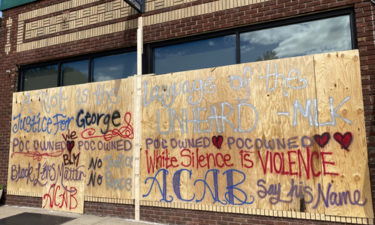 Justice For George
POC OWNED
POC OWNED
WE
BLM
NO
Black Lives Matter
NO
ACAB
Language of the
UNHEARD -MLK
POC OWNED POC OWNED
White Silence is VIOLENCE
ACAB Say his Name